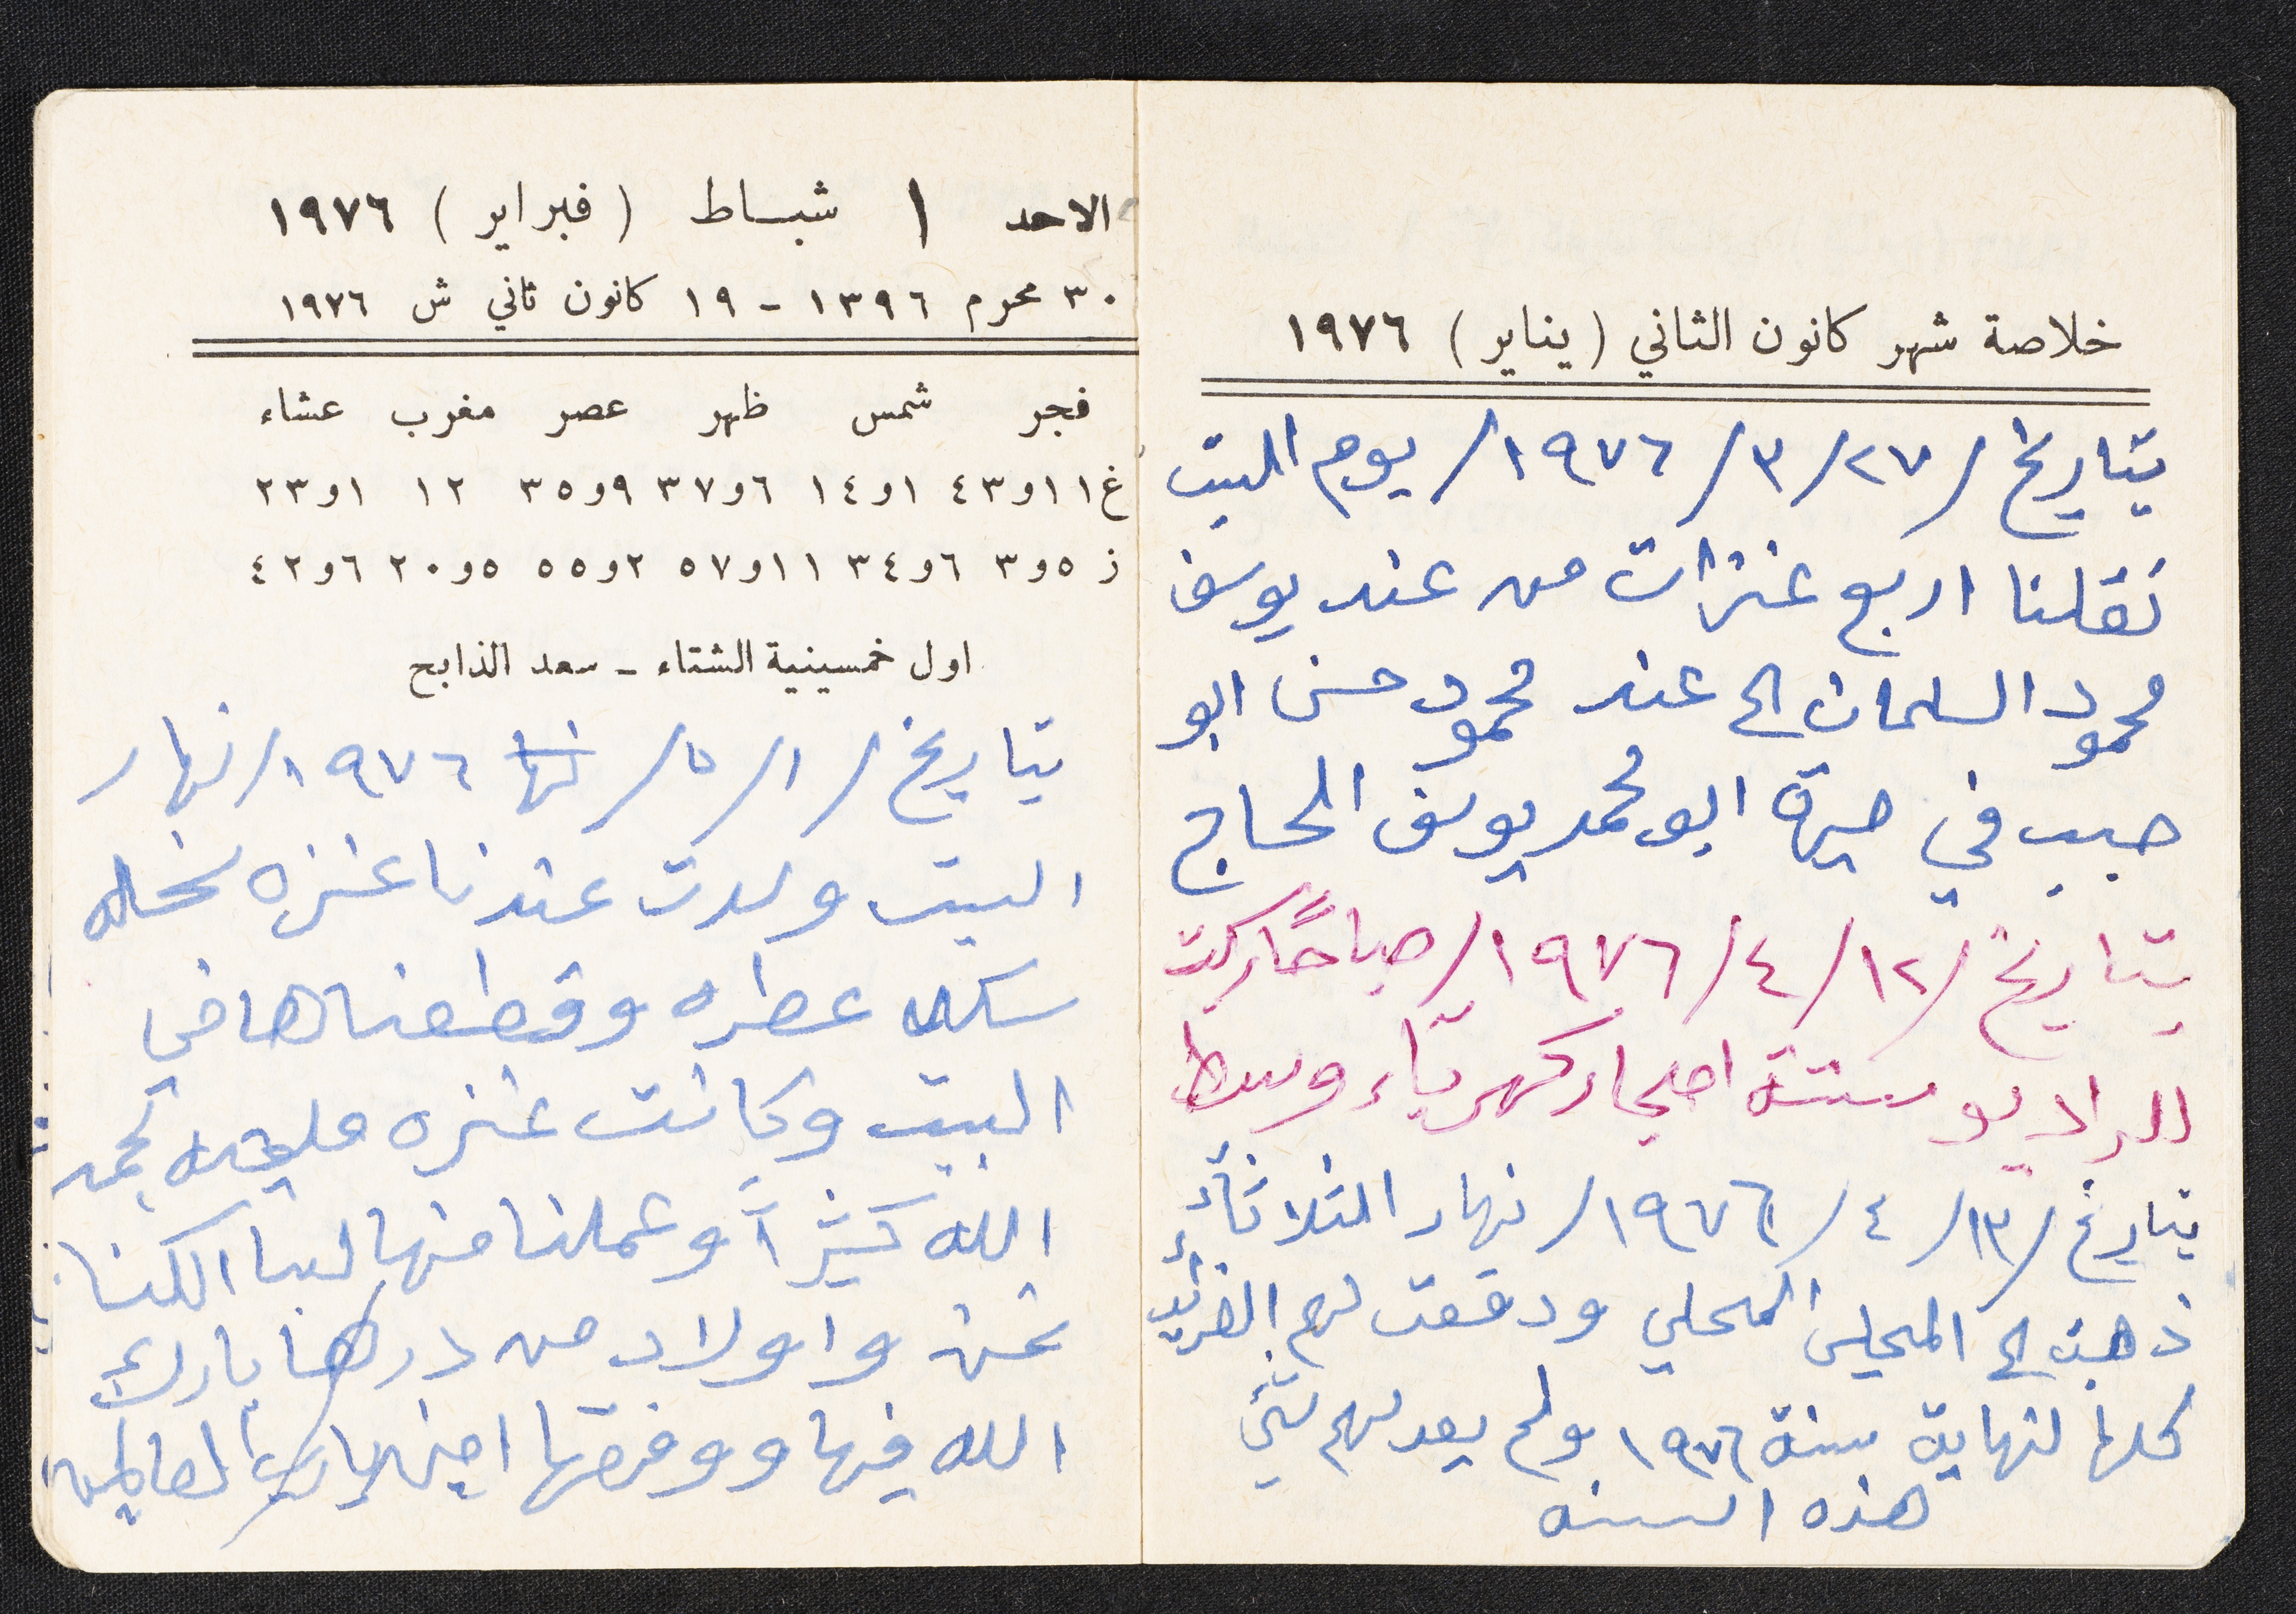 خلاصة شهر كانون الثاني (يناير) ١٩٧٦
بتاريخ /٢٧/٣/١٩٧٦/ يوم السبت
نقلنا اربع عنزات من عند يوسف
محمود السلمان الى عند محمود حسن ابو
حبيب في صيرة ابو محمد يوسف الحاج
بتاريخ /١٢/٤/١٩٧٦/ صباحًا ركبت
للراديو ستة احجار كهرباء وسط
بتاريخ /١٣/٤/١٩٧٦/ نهار الثلاثاء
ذهبت الى المجلس المحلي ودفعت لهم الضرائب
كلها لنهاية سنة ١٩٧٦ ولم يعد لهم شيئ
هذه السنه
الاحد ١ شباط (فبراير) ١٩٧٦
٣٠ محرم ١٣٩٦ - ١٩ كانون ثاني ش ١٩٧٦
فجر شمس ظهر عصر مغرب عشاء
غ ١١و٤٣ ١و١٤ ٦و٣٧ ٩و٣٥ ١٢ ١و٢٣
ز ٥و٣ ٦و٣٤ ١١و٥٧ ٢و٥٥ ٥و٢٠ ٦و٤٢
اول خمسينية الشتاء - سعد الذابح
بتاريخ /١/٥/ نها ١٩٧٦/ نهار
السبت ولدت عندنا عنزه نحله
سكه عطره وقطعناها في
البيت وكانت عنزه مليحه نحمد
الله كثيراً وعملنا منها لبا اكلنا
نحن واولاد من درها بارك
الله فيها ووفقها امين يا رب العالمين